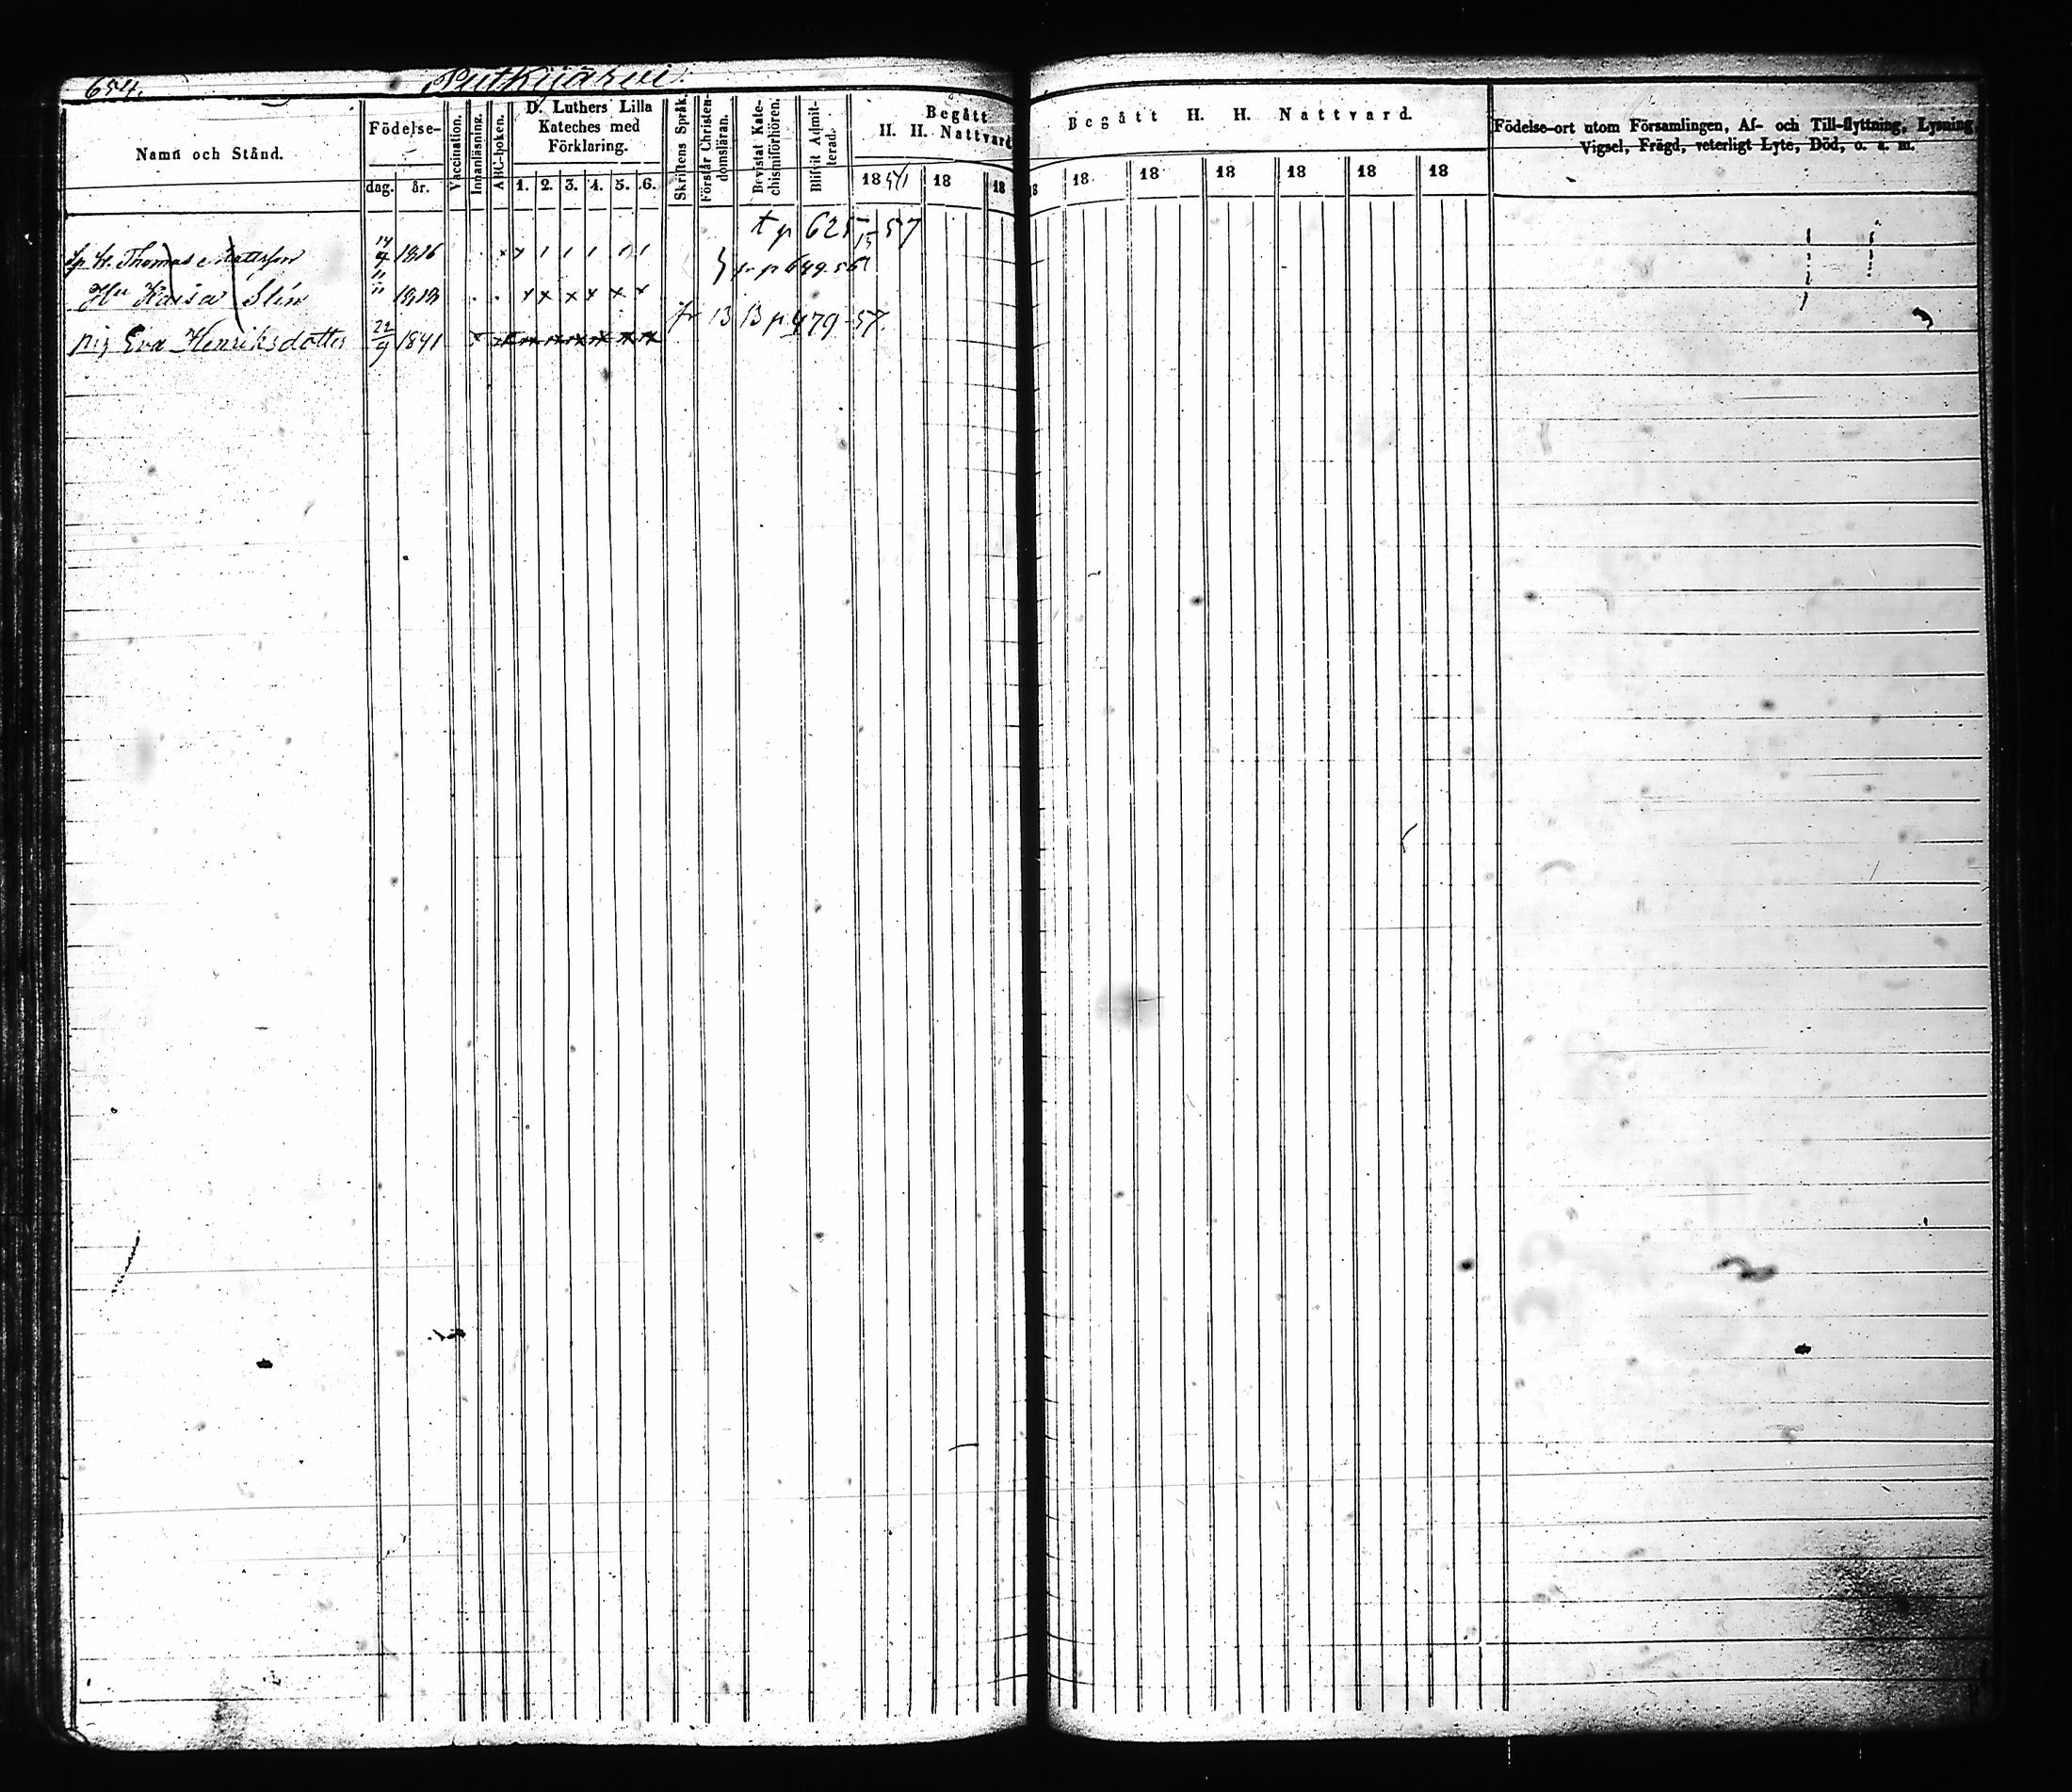 654. Putkijärvi
Namn och Stånd.
Födelse-
dag. år.
Vaccination.
Innanläsning.
ABC-boken.
D. Luthers Lilla
Kateches med
Förklaring.
1. 2. 3. 4. 5. 6.
Skriftens Språk.
Förstår Christen-
domsläran.
Bevistat Kate-
chismiförhören.
Blifvit Admit-
terad.
Begått
H. H. Nattvard
18 18 18
Begått H. H. Nattvard.
18 18 18 18 18 18 18
Födelse-ort utom Församlingen, Af- och Till-flyttning, Lysning,
Vigsel, Frägd, veterligt Lyte, Död, o. a. m.
t p 625 57
Thomas Mattsson 14/7 1816 fr p 649 56
Hu Kaisa Slin 1818
fr 13 B p 479-57.
pig Eva Henriksdotter 22/9 1841